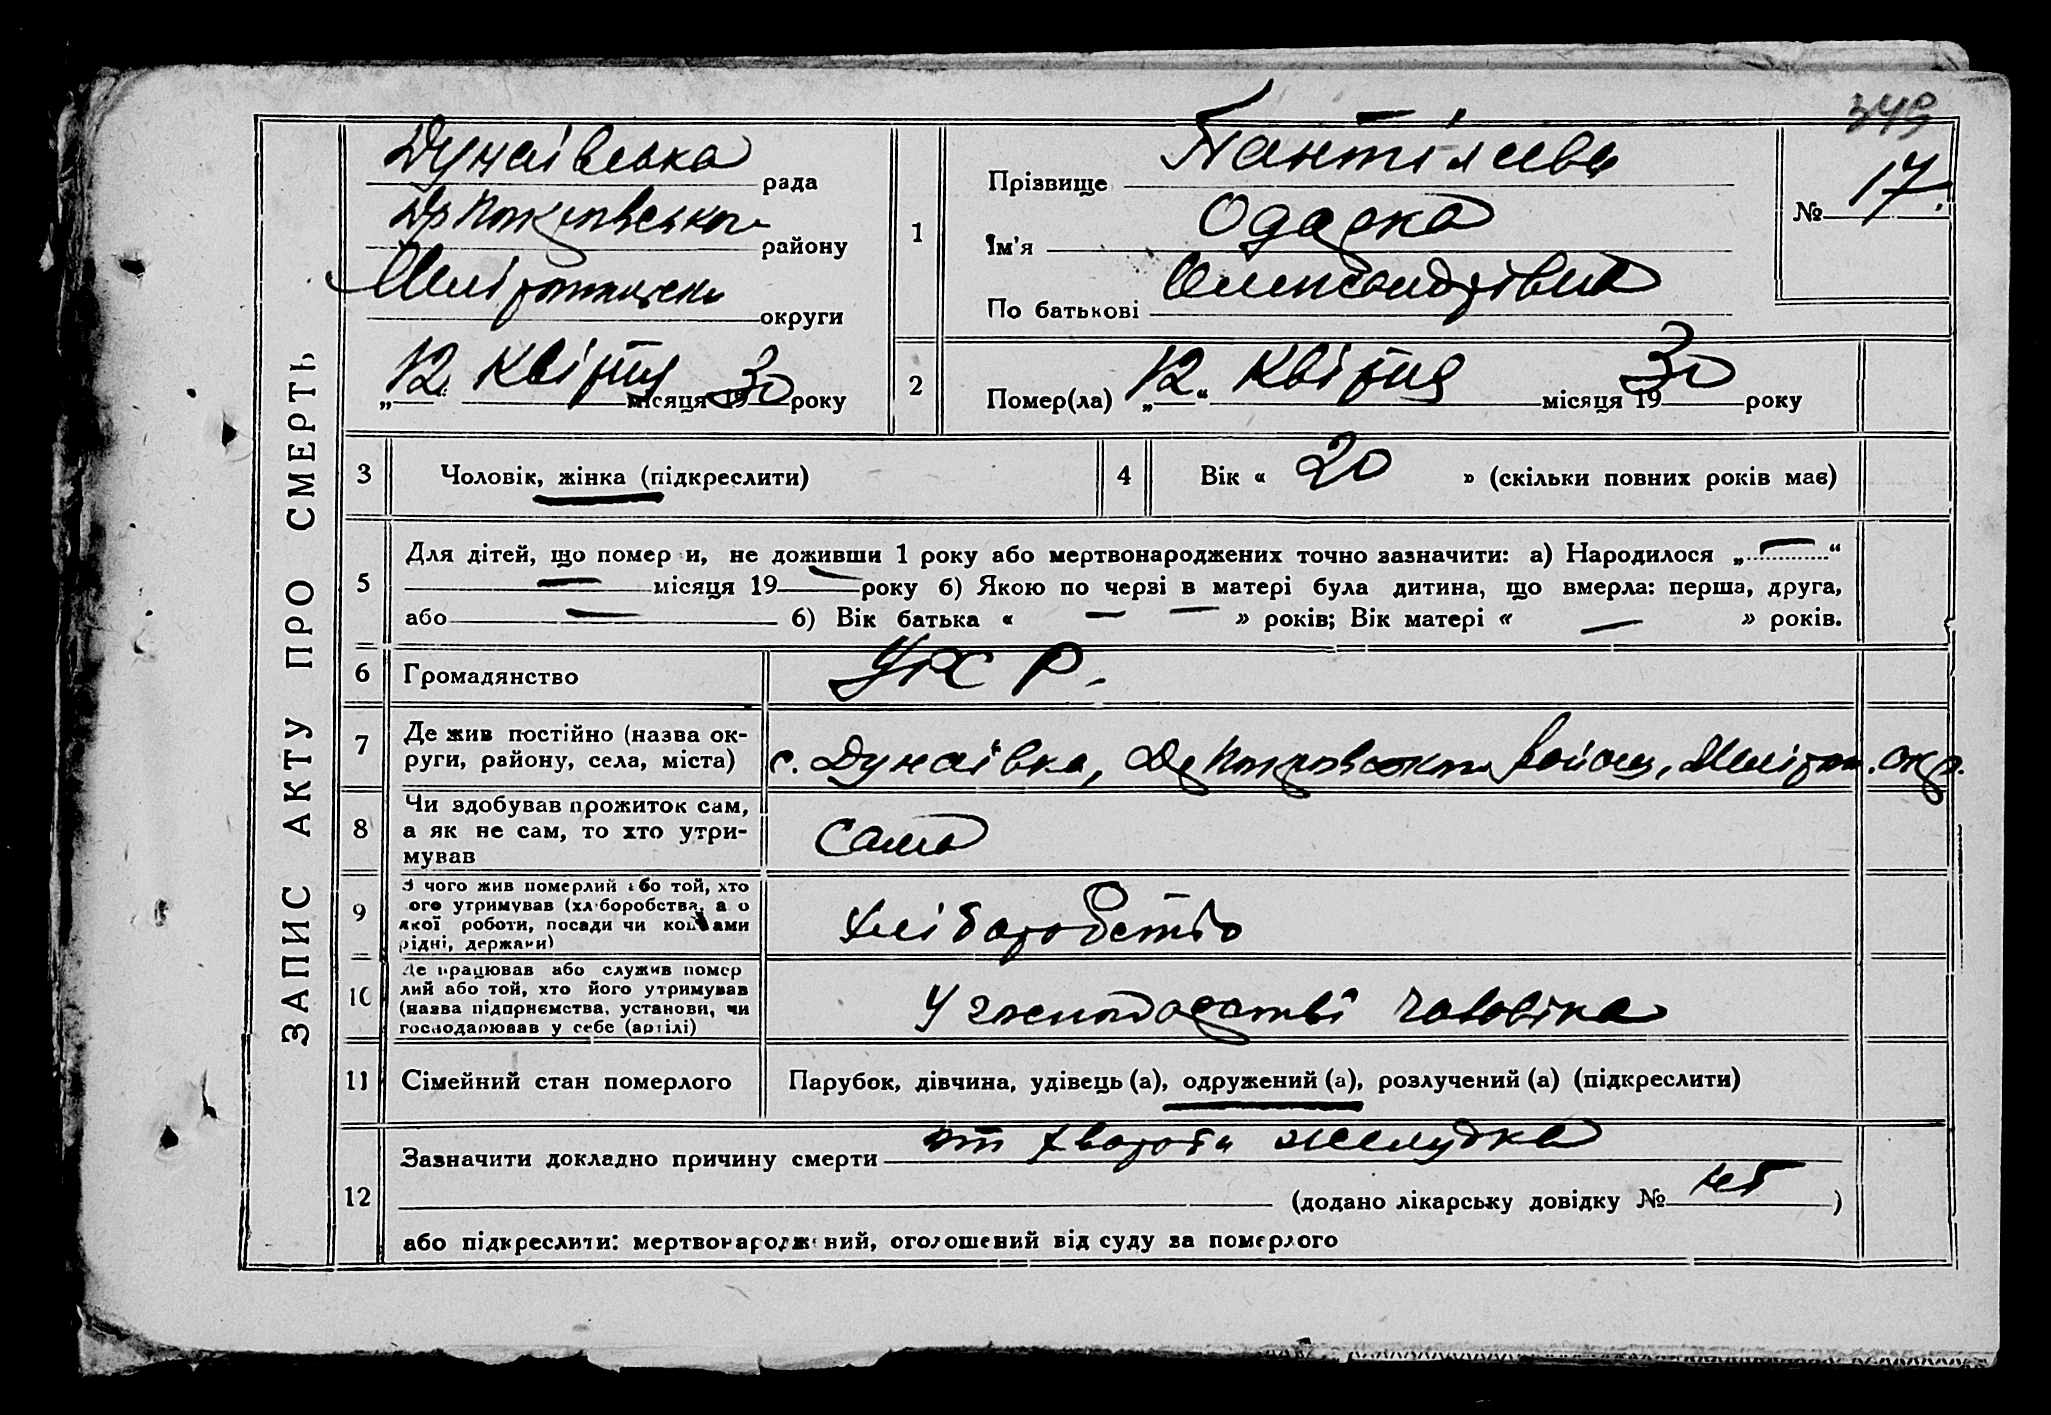 349
ЗАПИС АКТУ ПРО СМЕРТЬ
Дунаївська рада
району
округи
„12“ Квітня місяця 1930 року
1
Прізвище
Ім'я Одарка
По батькові Олександрівна
№ 17.
2
Помер(ла) „12“ Квітня місяця 1930 року
3 Чоловік, жінка (підкреслити)
4 Вік « 20 » (скільки повних років має)
5
Для дітей, що помер и, не доживши 1 року або мертвонароджених точно зазначити: а) Народилося „—“
— місяця 19— року б) Якою по черзі в матері була дитина, що вмерла: перша, друга,
або — б) Вік батька « — — » років; Вік матері « — » років.
6 Громадянство УРСР.
7
Де жив постійно (назва ок-
руги, району, села, міста) с. Дунаївка,
8
Чи здобував прожиток сам,
а як не сам, то хто утри-
мував
сама
9
З чого жив померлий або той, хто
ого утримував (хліборобства, а о
якої роботи, посади чи коштами
рідні, держави)
хліборобство
10
Де працював або служив помер
лий або той, хто його утримував
(назва підприємства, установи, чи
господарював у себе (артілі)
У господарстві чоловіка
11 Сімейний стан померлого Парубок, дівчина, удівець (а), одружений (а), розлучений (а) (підкреслити)
12
Зазначити докладно причину смерти от хвороти желудка
(додано лікарську довідку № )
або підкреслити: мертвонароджений, оголошений від суду за померлого